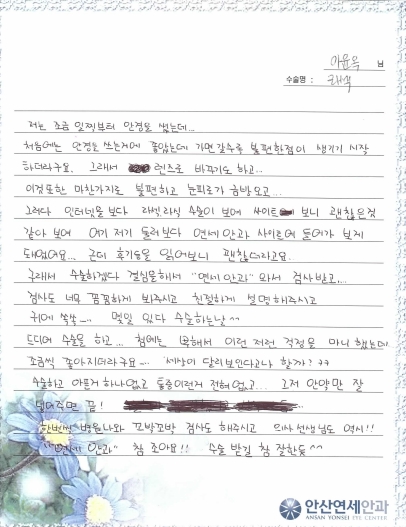 이윤옥 님
수술명 : 라섹
저는 조금 일찍부터 안경을 썼는데...
처음에는 안경을 쓰는게 좋았는데 가면갈수록 불편한점이 생기기 시작
하더라구요. 그래서 렌즈로 바꾸기도 하고...
이것또한 마찬가지로 불편하고 눈피로가 금방오고...
그러다 인터넷을 보다 라섹,라식 수술이 보여 사이트 보니 괜찮은것
같아 보여 여기 저기 둘러보다 연세안과 사이트에 들어가 보게
되었어요... 근데 후기들을 읽어보니 괜찮더라고요.
그래서 수술하겠다 결심을해서 "연세안과" 와서 검사받고...
검사도 너무 꼼꼼하게 봐주시고 친절하게 설명해주시고
귀에 쏙쏙.... 몇일 있다 수술하는날^^
드디어 수술을 하고... 첨에는 이런 저런 걱정을 마니 했는데
조금씩 좋아지더라구요.... '세상이 달리보인다고나 할까?
수술하고 아픈게 하나없고 통증이런거 전혀없고... 그저 안약만 잘
넣어주면 끝!
한번씩 병원나와 꼬박꼬박 검사도 해주시고 의사선생님도 역시!!
"연세 안과" 참 좋아요!! 수술 받길 참 잘한듯^^
안산연세안과
ANSAN YONSEI EYE CENTER